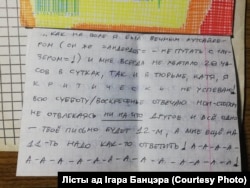 ...КАК НА ВОЛЕ Я БЫЛ ВЕЧНЫМ
РОМ (
ЗЕРОМ =) И МНЕ ВСЕГДА НЕ ХВАТАЛО 24 ЧА-
СОВ В СУТКАХ, ТАК И В ТЮРЬМЕ, КАТЯ, Я
К Р И Т И Ч Е С К И НЕ УСПЕВАЮ
ВСЮ СУББОТУ/ВОСКРЕСЕНЬЕ ОТВЕЧАЮ
НЕ ОТВЛЕКАЯСЬ НИ НА ЧТО ДРУГОЕ И ВСЁ ОДНО
ТВОЁ ПИСЬМО БУДЕТ 12-М, А МНЕ ЕЩЁ НА
11-ТЬ НАДО КАК-ТО ОТВЕТИТЬ!
А-А-А-А-А-А-А-А-А-А-А
А-А-А-А-А-А-А-А-А-А-А
Лісты ад Ігара Банцэра (Courtesy Photo)